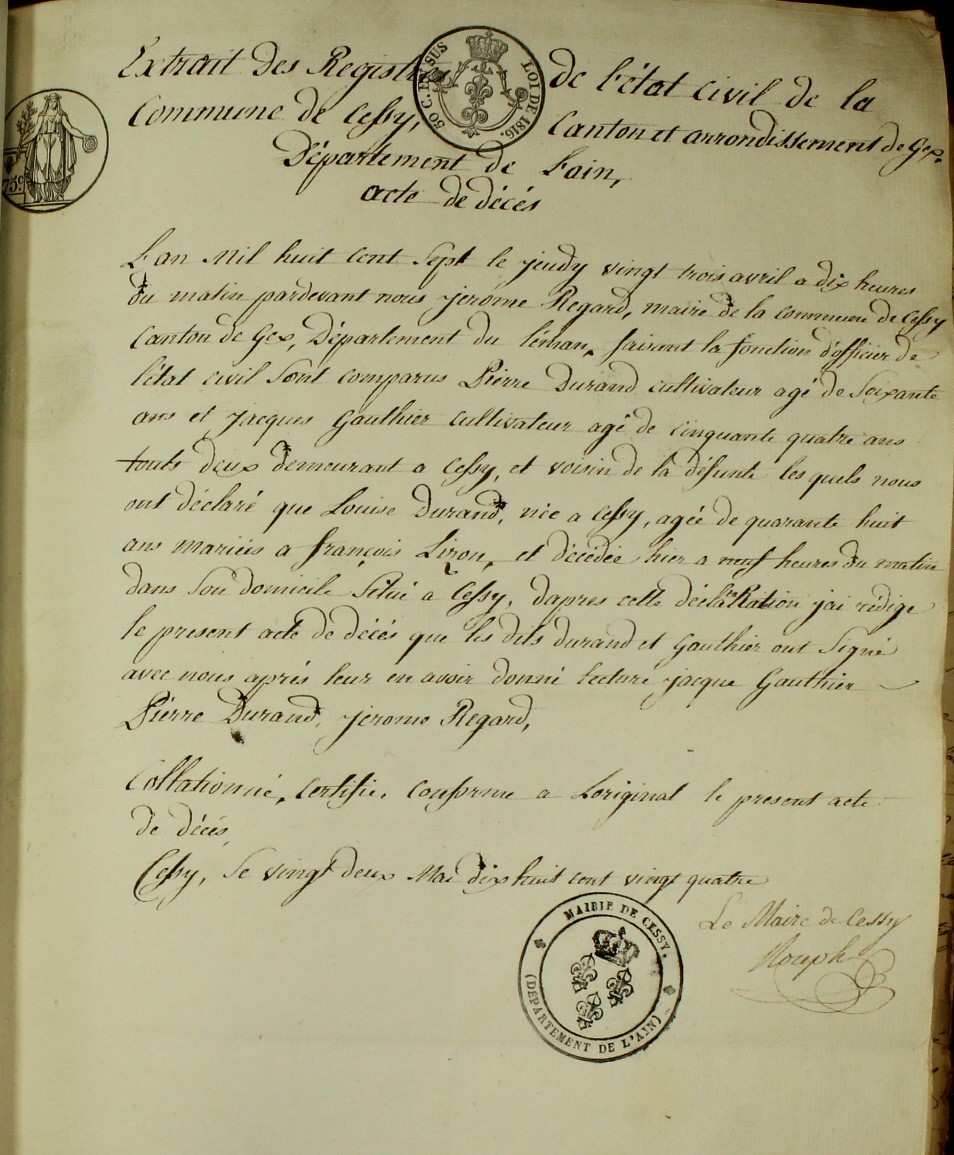 Extrait des Registres de l'état civil de la
Commune de Cessy, Canton et arrondissement de Gex,
Département de Lain,
acte de décés
50 C. EN SUS LOI DE 1816.
75c
L'an Mil huit cent Sept le jeudy vingt trois avril a dix heures
du matin pardevant nous jerome Regard, maire de la commune de Cessy
Canton de Gex, Département du léman, faisant la fonction d'officier de
l'état civil Sont comparus Pierre Durand cultivateur agé de Soixante
ans et jacques Gauthier cultivateur agé de Cinquante quatre ans
touts deux demeurant a Cessy, et voisin de la défunte les quels nous
ont déclaré que Louise Durand, née a Cessy, agée de quarante huit
ans mariées a françois Lizon, et décédée hier a neuf heures du matin
dans Son domicile Situé a Cessy, dapres cette déclaRation j'ai rédigé
le present acte de décés que les dits durand et Gauthier ont Signé
avec nous aprés leur en avoir donné lecture jacque Gauthier
Pierre Durand, jerome Regard,
Collationné, Certifié, Conforme a Loriginal le present acte
de décés,
Cessy, le vingt deux Mai dix huit cent vingt quatre
Le Maire de Cessy
MAIRIE DE CESSY.
(DÉPARTEMENT DE L'AIN)